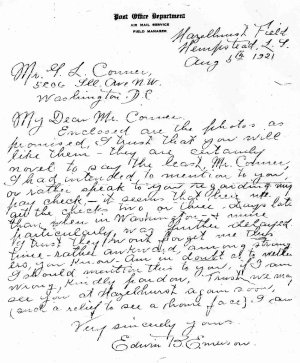 Post Office Department
AIR MAIL SERVICE
FIELD MANAGER
Hazelhurst Field
Hempstead, L.I.
Aug 5th 1921
Mr. G. L. Conner,
5606 Ill. Ave N.W.
Washington D.C
My Dear Mr. Conner,
Enclosed are the photos as
promised, I trust that you will
like them - they are certainly
novel to say the least. Mr. Conner,
I had intended to mention to you
or rather speak to you regarding my
pay check, - it seems that their
all the checks two or three days late
than when in Washington & mine
particularly was further delayed.
I trust they wont forget me this
time - rather awkward among strang
ers you know. Am in doubt as to whether
I should mention this to you, if I am
wrong, kindly pardon. Trust we may
see you at Hazelhurst again soon,
(such a relief to see a home face). I am
Very sincerely yours.
Edwin